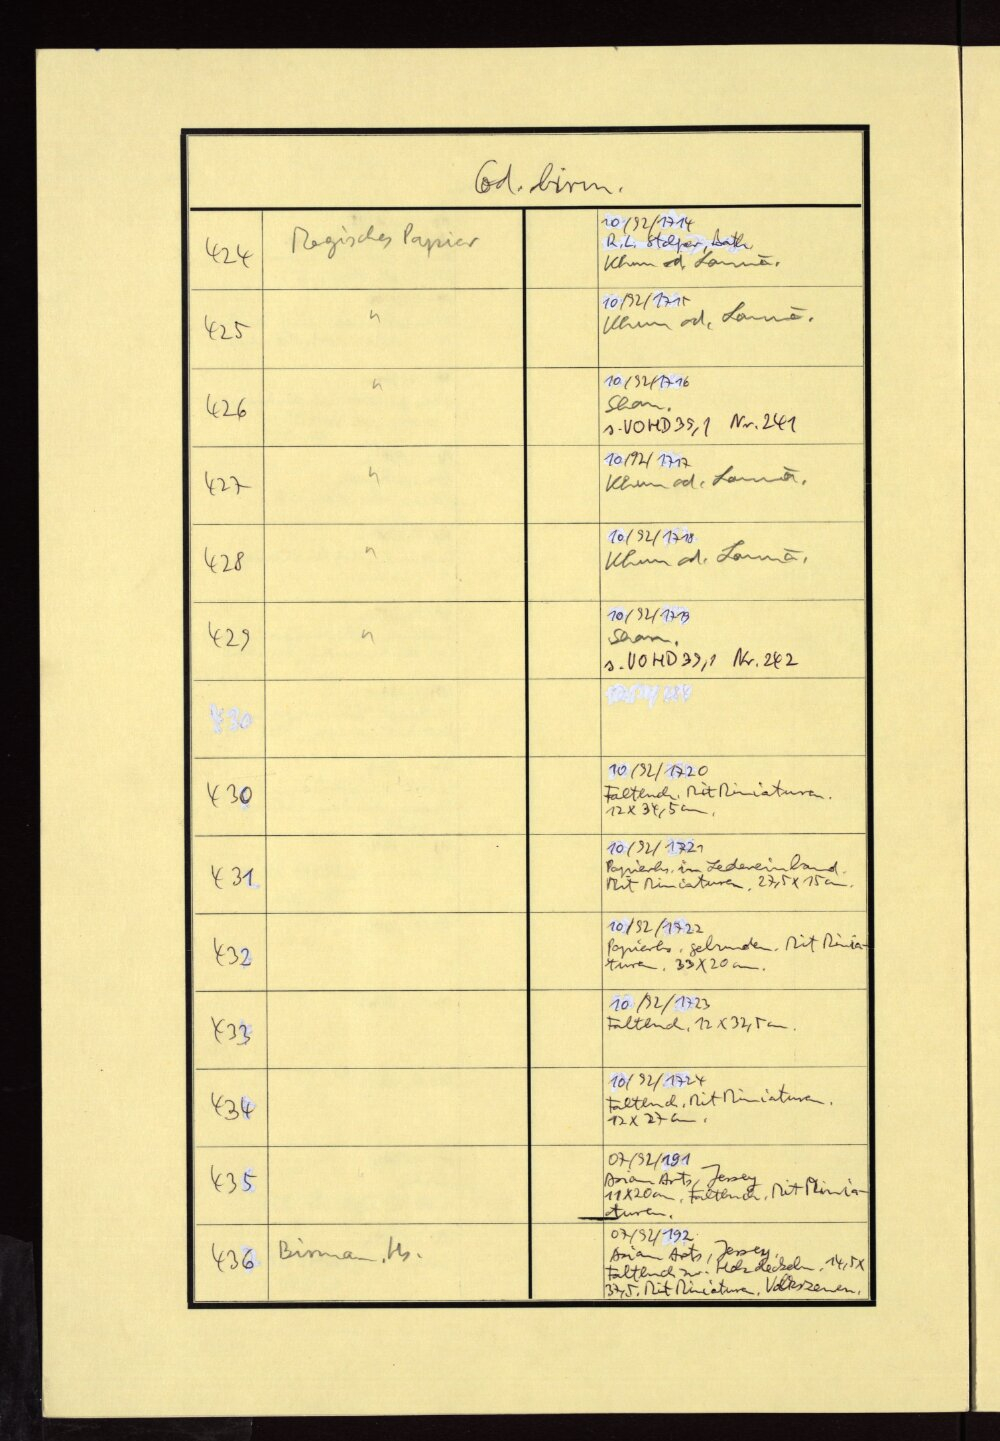 Cod. birm.
424
Magisches Papier
10/92/1714
R.L. Stolper, Bath.
Khün od. Lannā.
425
"
10/92/1715
Khün od. Lannā.
426
"
10/92/1716
Shan.
s. VOHD 39,1 Nr. 241
427
"
10/92/1717
Khün od. Lannā.
428
"
10/92/1718
Khün od. Lannā.
429
"
10/92/1719
Shan.
s. VOHD 39,1 Nr. 242
430
430
10/92/1720
Faltbuch. Mit Miniaturen.
12 x 34,5 cm.
431
10/92/1721
Papierhs. im Ledereinband.
Mit Miniaturen. 27,5 x 15 cm.
432
10/92/1722
Papierhs. gebunden. Mit Minia-
turen. 33 x 20 cm.
433
10/92/1723
Faltbuch. 12 x 32,5 cm.
434
10/92/1724
Faltbuch. Mit Miniaturen.
12 x 27 cm.
435
07/92/191
Asian Arts, Jersey
11 x 20 cm. Faltbuch. Mit Minia-
turen.
436
Birman. Hs.
07/92/192
Asian Arts, Jersey.
Faltbuch zw. Holzdeckeln. 14,5 x
37,5. Mit Miniaturen. Volksszenen.